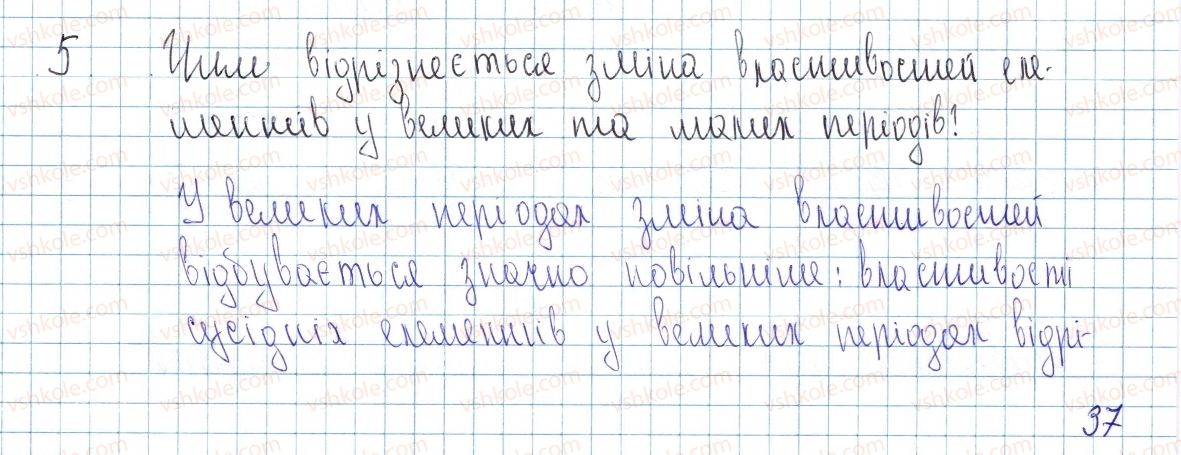 5. Чим відрізняється зміна властивостей еле-
ментів у великих та малих періодів?
У великих періодах зміна властивостей
відбувається значно повільніше: властивості
сусідніх елементів у великих періодах відрі-
37